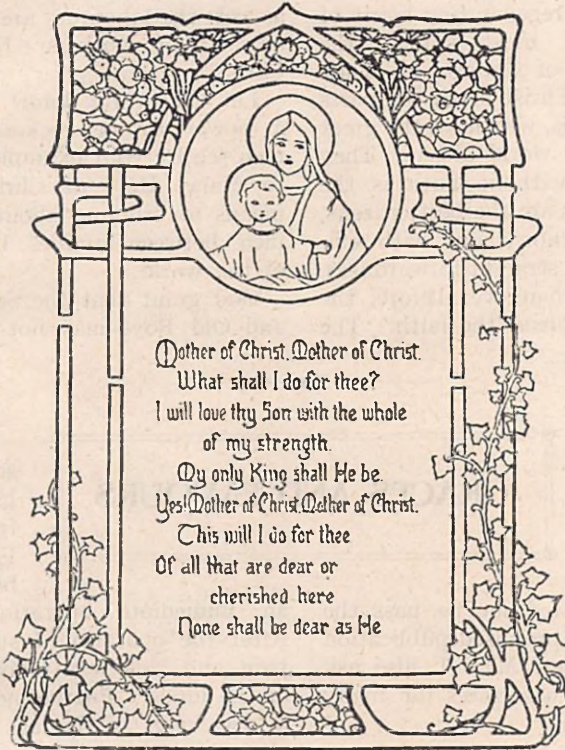 Mother of Christ. Mother of Christ.
What shall I do for thee?
I will love thy Son with the whole
of my strength.
My only King shall He be
Yes! Mother of Christ. Mother of Christ.
This will I do for thee
Of all that are dear or
cherished here
None shall be dear as He